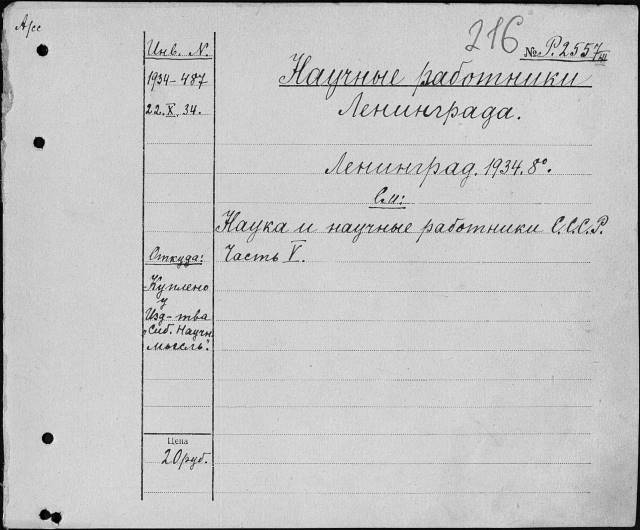 216
№ Р.2557/III
Инв. N.
1934-487
22.X.34.
Научные работники
Ленинграда.
Ленинград. 1934. 8°.
См:
Наука и научные работники С.С.С.Р.
Часть V.
Откуда:
Куплено
у
Изд-тва
Научн
мысль".
Цена
20 руб.